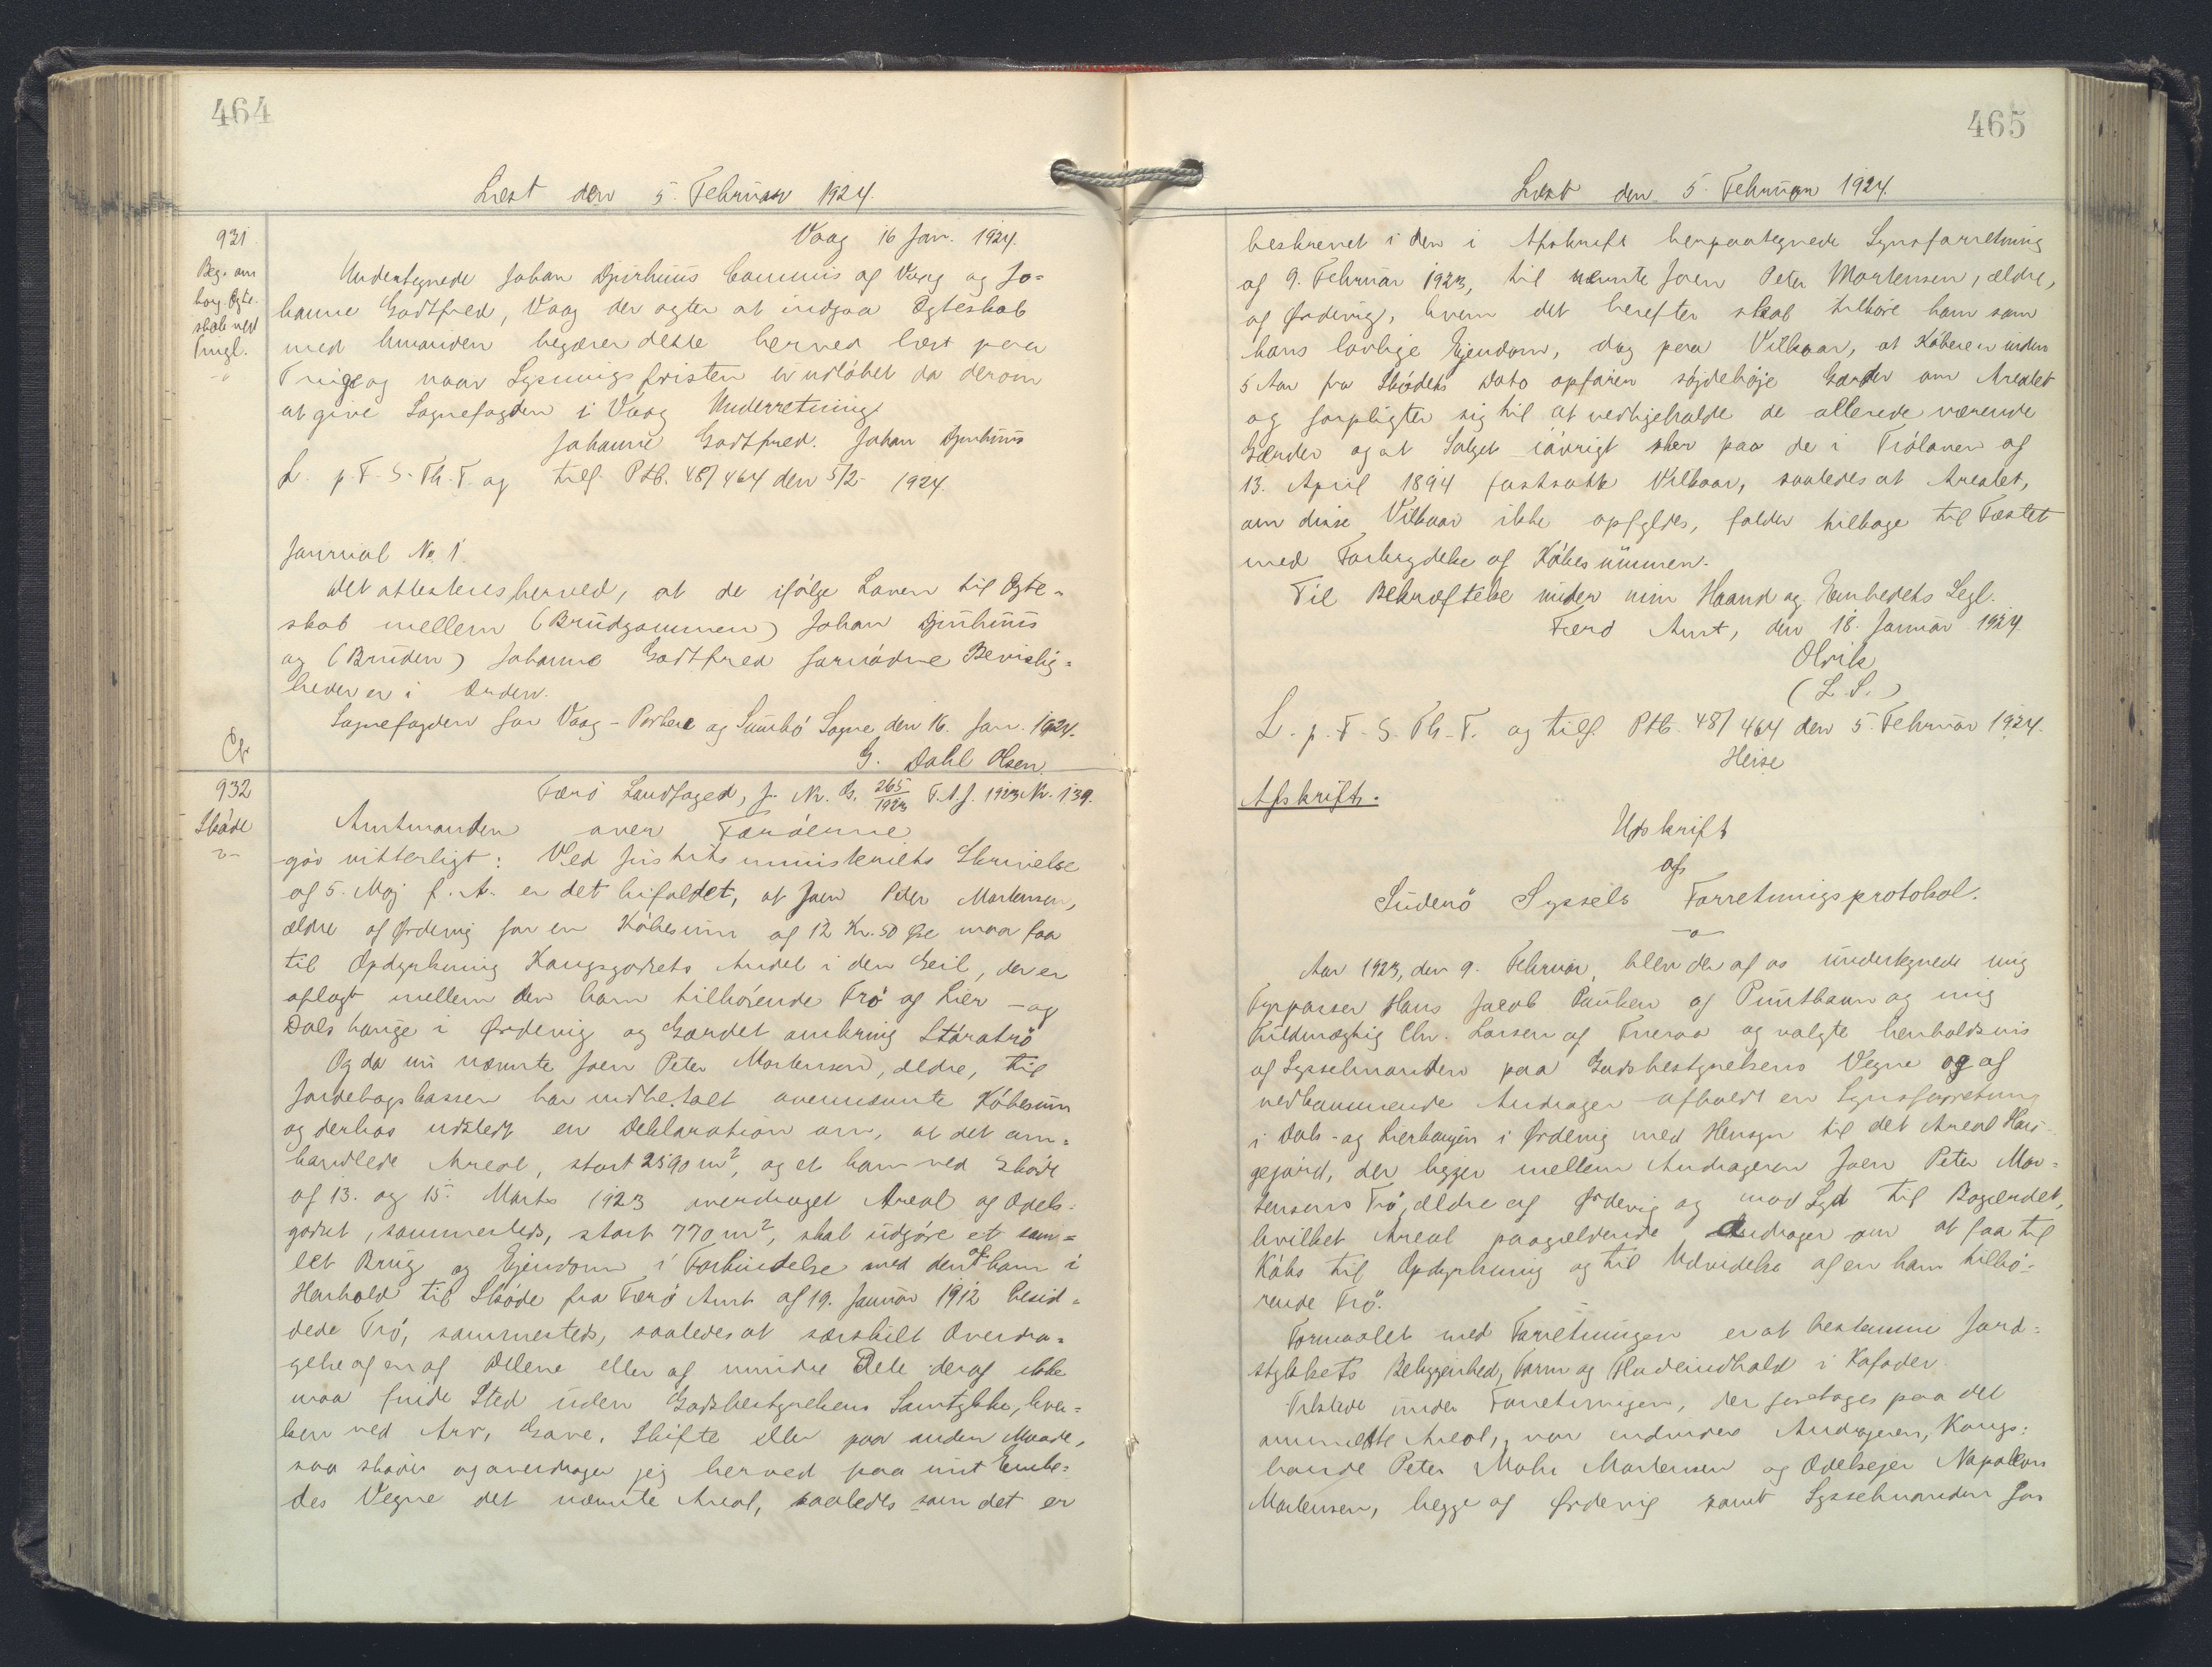 464
Læst den 5. Februar 1924.
931
Beg. om
borg. Ægte-
skab ved
Tingl.
Vaag 16 Jan. 1924.
Undertegnede Johan Djurhuus Commis af Vaag og Jo=
hanne Godtfred, Vaag der agter at indgaa Ægteskab
med hinanden begærer dette herved læst paa
Tinge og naar Lysningsfristen er udløbet da derom
at give Sognefogden i Vaag Underretning
Johanne Godtfred. Johan Djurhuus
L. p. F. S. Th. T. og tilf. Ptb. 48/464 den 5/2 1924.
Journal No 1.
Det attesteres herved, at de ifølge Loven til Ægte=
skab mellem (Brudgommen) Johan Djurhuus
og (Bruden) Johanne Godtfred fornødne Bevislig=
heder er i Orden.
Sognefogden for Vaag - Porkere og Sumbø Sogne, den 16. Jan. 1924.
G. Dahl Olsen.
932
Skøde
Færø Landfoged, J. Nr. B. 265/1923 F.A.J. 1923 Nr. 139.
Amtmanden over Færøerne
gør vitterligt: Ved Justitsministeriets Skrivelse
af 5. Maj f. A. er det bifaldet, at Joen Peter Mortensen,
ældre af Ørdevig for en Købesum af 12 Kr. 50 Øre maa faa
til Opdyrkning Kongsgodsets Andel i den Geil, der er
aflagt mellem den ham tilhørende Trø og Lier - og
Dals hauge i Ørdevig og Gærdet omkring Stóratrø
Og da nu nævnte Joen Peter Mortensen, ældre, til
Jordebogskassen har indbetalt ovennævnte Købesum
og derhos udstedt en Deklaration om, at det om=
handlede Areal, stort 2590 m², og et ham ved Skøde
af 13. og 15. Marts 1923 overdraget Areal af Odels=
godset, sammesteds, stort 770 m², skal udgøre et sam=
let Brug og Ejendom i Forbindelse med den af ham i
Henhold til Skøde fra Færø Amt af 19. Januar 1912 besid=
dede Trø, sammesteds, saaledes at særskilt Overdra=
gelse af en af Delene eller af mindre Dele deraf ikke
maa finde Sted uden Godsbestyrelsens Samtykke, hver=
ken ved Arv, Gave, Skifte eller paa anden Maade,
saa skøder og overdrager jeg herved paa mit Embe=
des Vegne det nævnte Areal, saaledes som det er
465
Læst den 5. Februar 1924.
beskrevet i den i Afskrift herpaategnede Synsforretning
af 9. Februar 1923, til nævnte Joen Peter Mortensen, ældre,
af Ørdevig, hvem det herefter skal tilhøre ham som
hans lovlige Ejendom, dog paa Vilkaar, at Køberen inden
5 Aar fra Skødets Dato opfører søjdehøje Gærder om Arealet
og forpligter sig til at vedligeholde de allerede værende
Gærder og at Salget iøvrigt sker paa de i Trøloven af
13. April 1894 fastsatte Vilkaar, saaledes at Arealet,
om disse Vilkaar ikke opfyldes, falder tilbage til Fæstet
med Forbrydelse af Købesummen.
Til Bekræftelse under min Haand og Embedets Segl.
Færø Amt, den 18. Januar 1924.
Olrik
(L. S.)
L. p. F. S. Th. T. og tilf. Ptb. 48/464 den 5. Februar 1924.
Heise
Afskrift.
Udskrift
af
Suderø Syssels Forretningsprotokol.
Aar 1923, den 9. Februar, blev der af os undertegnede mig
Fyrpasser Hans Jacob Poulsen af Punthavn og mig
Fuldmægtig Chr. Larsen af Tveraa og valgte henholdsvis
af Sysselmanden paa Godsbestyrelsens Vegne og af
vedkommende Andrager afholdt en Synsforretning
i Dals- og Lierhaugen i Ørdevig med Hensyn til det Areal Hau-
gejord, der ligger mellem Andrageren Joen Peter Mor=
tensens Trø, ældre af Ørdevig og mod Syd til Bøgærdet,
hvilket Areal paagældende Andrager om at faa til
Købs til Opdyrkning og til Udvidelse af en ham tilhø=
rende Trø.
Formaalet med Forretningen er at bestemme Jord=
stykkets Beliggenhed, Form og Fladeindhold i Kvfoder.
Tilstede under Forretningen, der foretages paa det
ommeldte Areal, var endvidere Andrageren, Kongs=
bonde Peter Mohr Mortensen og Odelsejer Napoleon
Mortensen, begge af Ørdevig samt Sysselmanden for